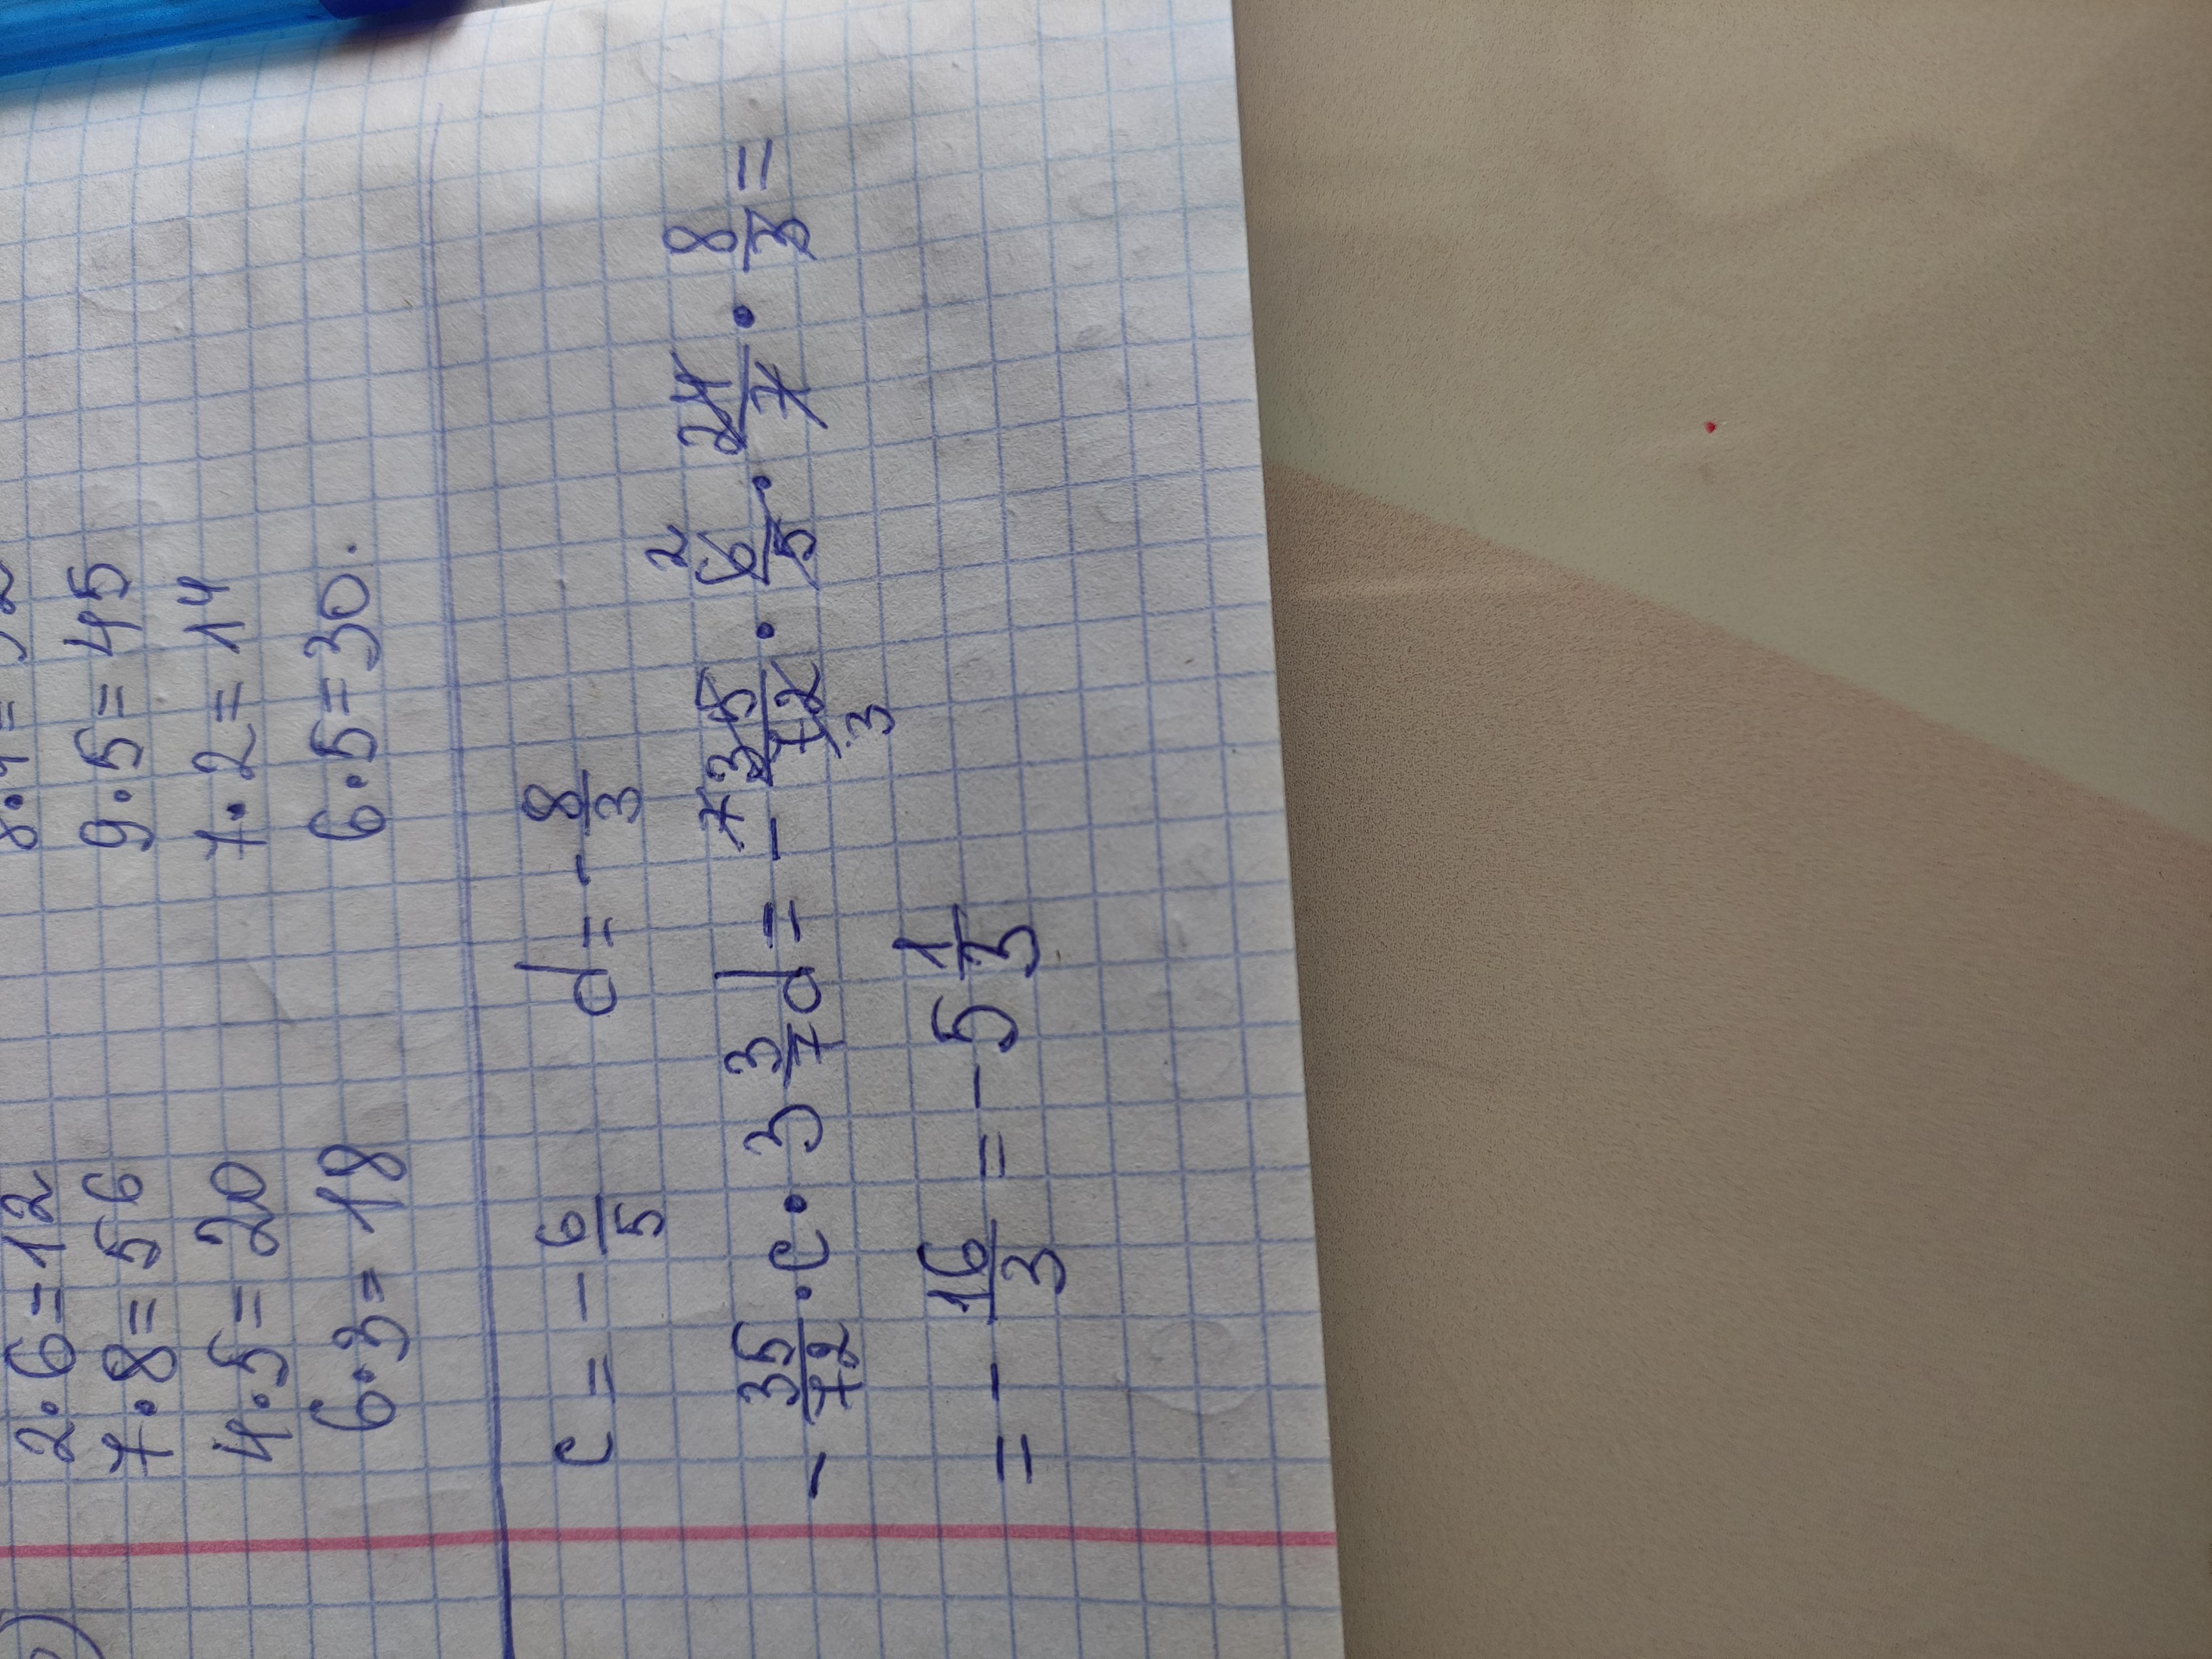 2·6=12
7·8=56 9·5=45
4·5=20 7·2=14
6·3=18 6·5=30.
c = -6/5 d = -8/3
-35/72 · c · 3 3/7 d = -35/72 · 6/5 · 24/7 · 8/3 =
7 2 3
= -16/3 = -5 1/3